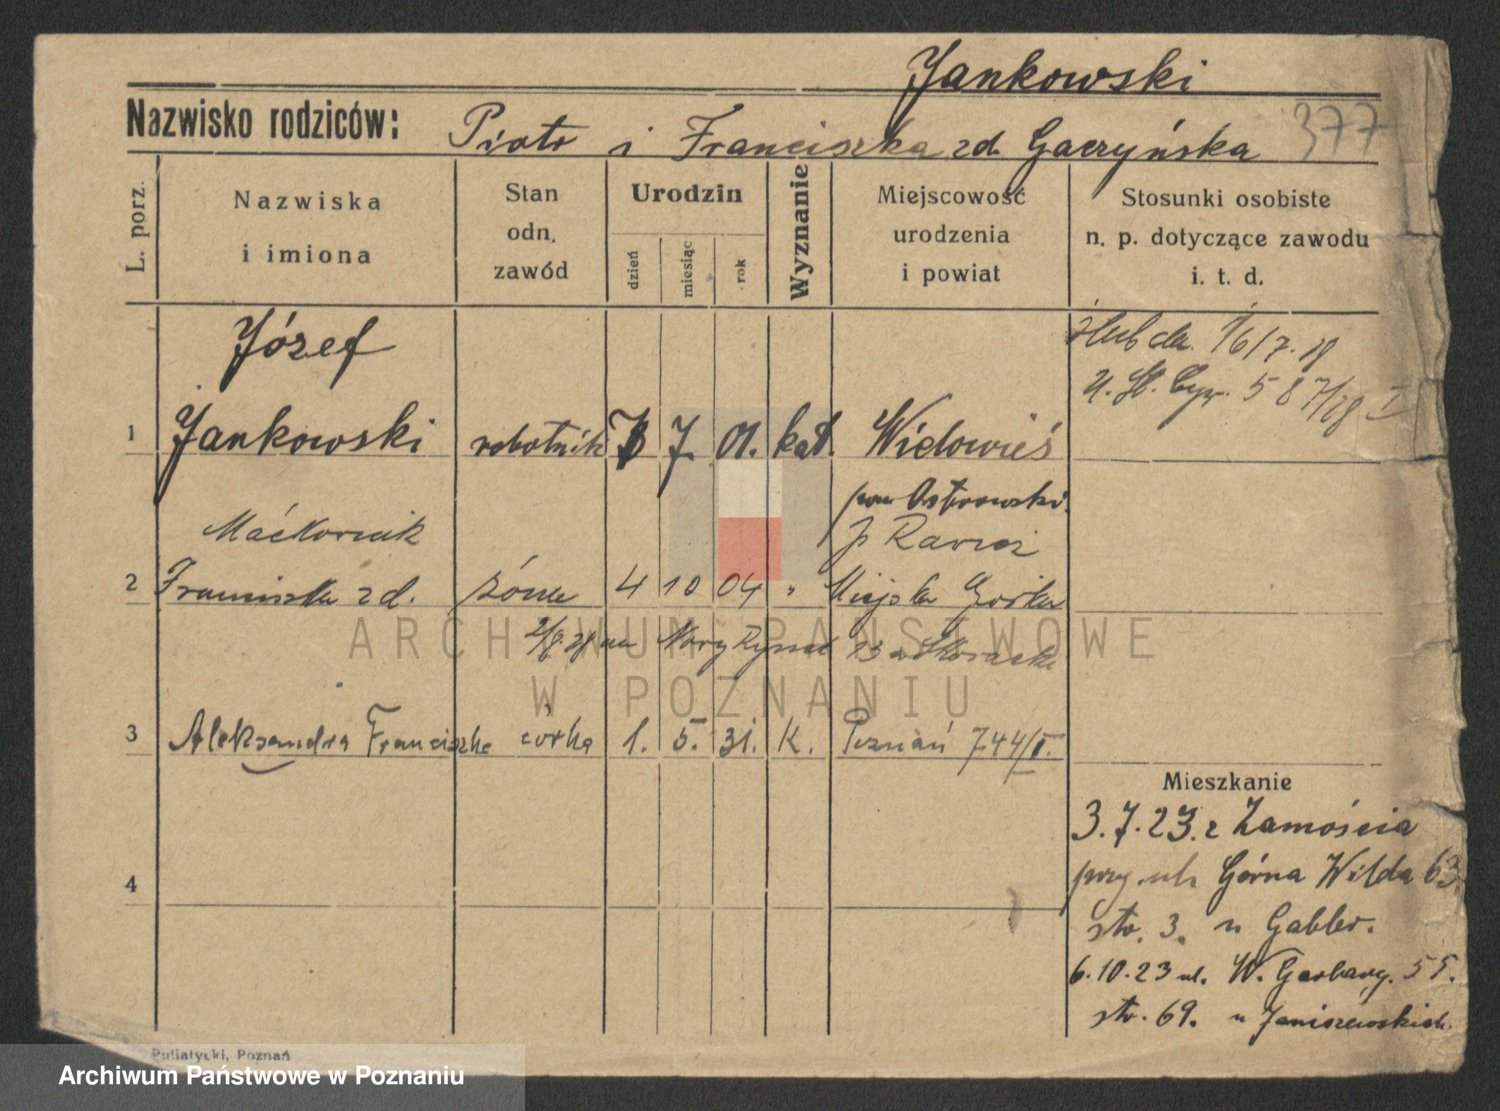 Jankowski
Nazwisko rodziców: Piotr i Franciszka zd. Gaczyńska 377
L. porz.
Nazwiska i imiona
Stan odn. zawód
Urodzin
dzień
miesiąc
rok
Wyznanie
Miejscowość urodzenia i powiat
Stosunki osobiste n. p. dotyczące zawodu i. t. d.
Józef
ślub dn. 16/7.28
U. St. Cyw. 587/28 I
1 Jankowski robotnik 7 01. kat. Widowieś
pow Ostrowski.
Maćkowiak
2 Franciszka zd. żona 4 10 04 " Miejska Górka
3 Aleksandra Franciszka córka 1. 5. 31. K. Poznań 744/I.
Mieszkanie
3.7.23. z Zamościa
przy ul. Górna Wilda 63
str. 3. u Gabler.
4
6.10.23 ul. W. Garbary. 55.
str. 69. u Janiszewskich.
ARCHIWUM PAŃSTWOWE
W POZNANIU
Putiatycki, Poznań
Archiwum Państwowe w Poznaniu